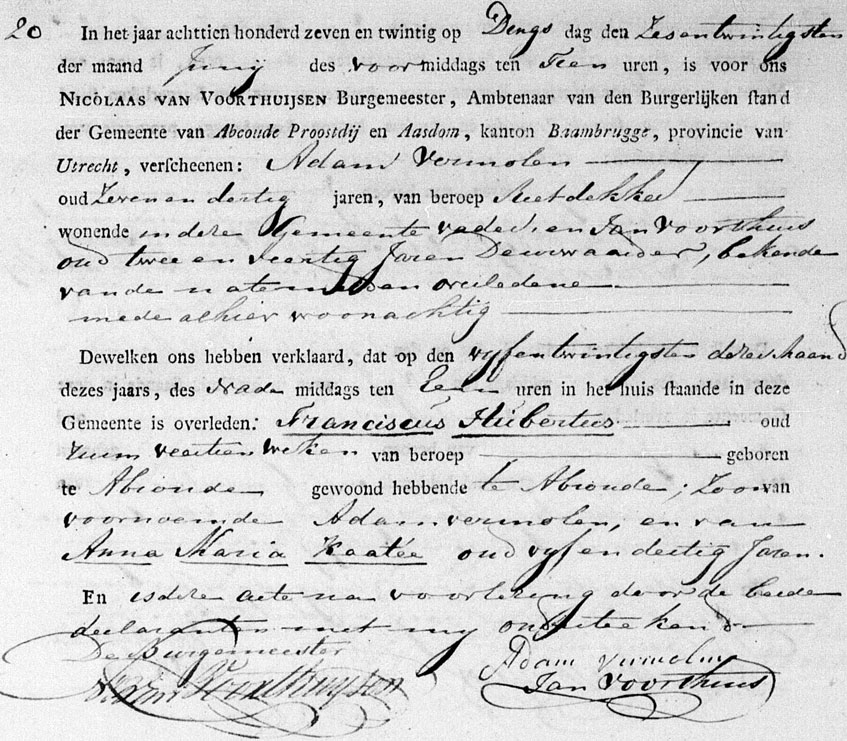 20 In het jaar achttien honderd zeven en twintig op Dengs dag den Zesentwintigsten
der maand Junij des voor middags ten Tien uren, is voor ons
NICOLAAS VAN VOORTHUIJSEN Burgemeester, Ambtenaar van den Burgerlijken stand
der Gemeente van Abcoude Proostdij en Aasdom, kanton Baambrugge, provincie van
Utrecht, verscheenen: Adam Vermolen
oud Zeven en dertig jaren, van beroep Rietdekker
wonende in dese Gemeente vader, en Jan Voorthuis
oud twee en veertig Jaren Deurwaarder, bekende
van de natemelden overledene
mede alhier woonachtig
Dewelken ons hebben verklaard, dat op den vyfentwintigsten dezer maand
dezes jaars, des nade middags ten Een uren in het huis staande in deze
Gemeente is overleden: Franciscus Hubertus oud
ruim veertien weken van beroep geboren
te Abcoude gewoond hebbende te Abcoude; Zoon van
voornoemde Adam vermolen, en van
Anna Maria Kaatée oud vyf en dertig Jaren.
En is dese acte na voorlezing door de beide
declaranten met my onderteekend
De Burgemeester
Voorthuysen Adam Vermolen
Jan Voorthuis